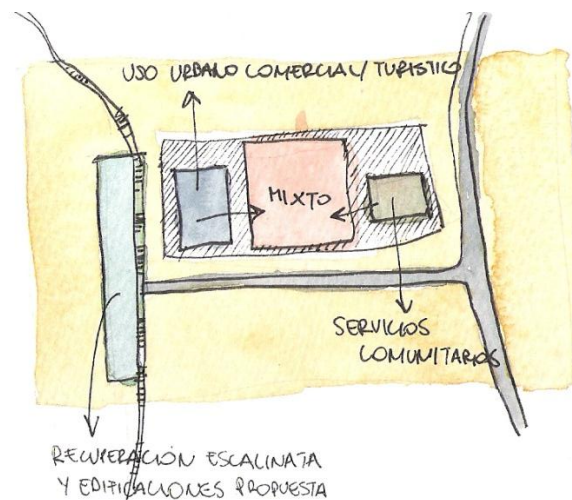 USO URBANO COMERCIAL/ TURISTICO
MIXTO
SERVICIOS
COMUNITARIOS
RECUPERACIÓN ESCALINATA
Y EDIFICACIONES PROPUESTA